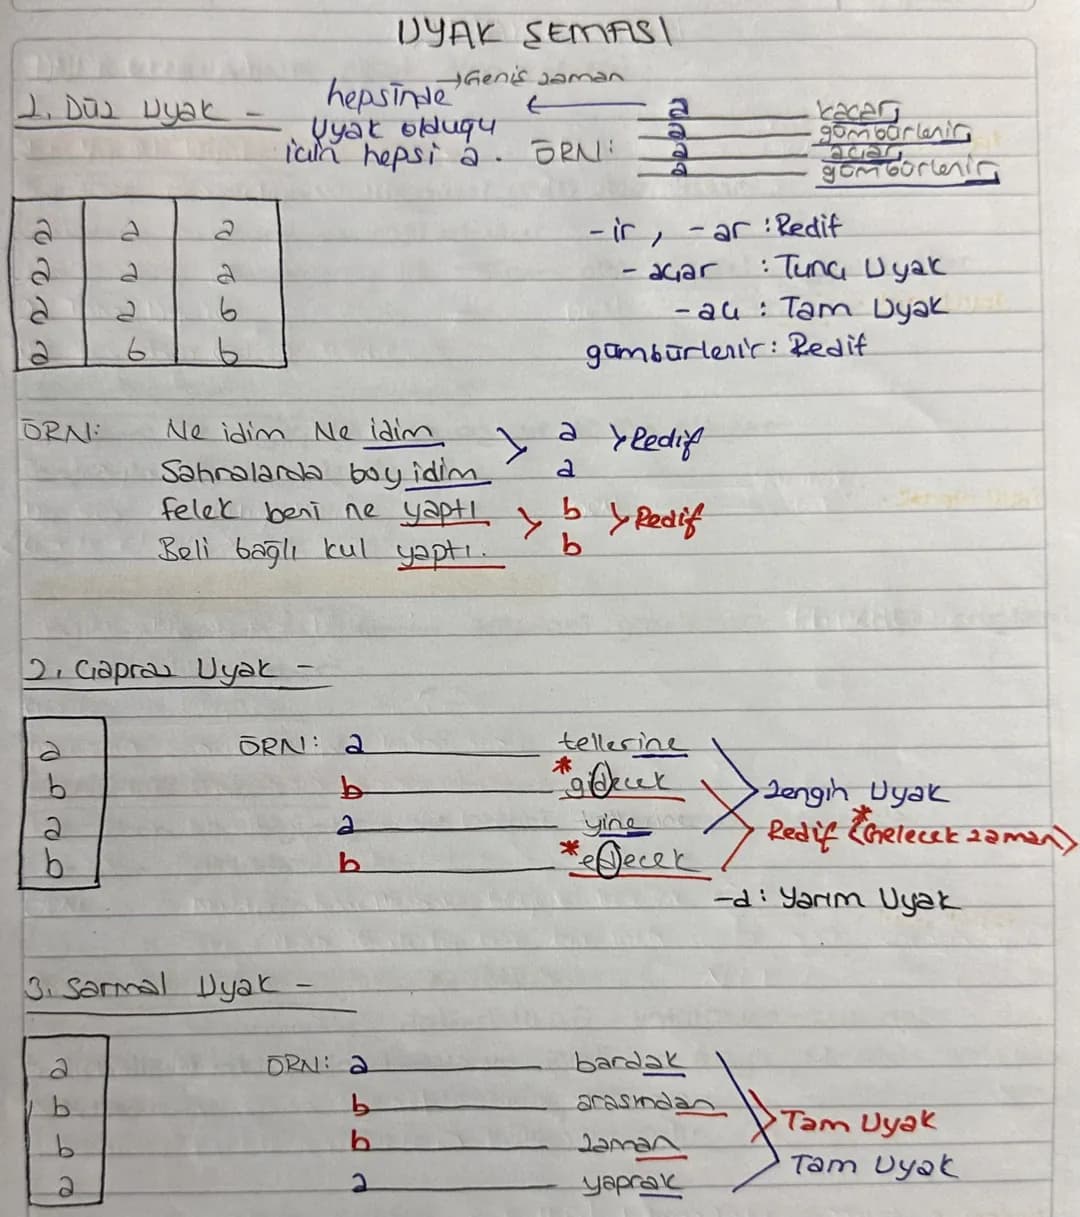 UYAK ŞEMASI
1. Düz Uyak -
hepsinde →Geniş zaman
Uyak olduğu
için hepsi a.
ÖRN:
a kaçar
a gümbürlenir
a açar
a gümbürlenir
a a a
a a a
a a b
a b b
-ir, -ar : Redif
- açar : Tunç Uyak
- aç : Tam Uyak
gümbürlenir : Redif
ÖRN: Ne idim Ne idim > a > Redif
Sahralarda boy idim a
felek beni ne yaptı > b > Redif
Beli bağlı kul yaptı. b
2. Çapraz Uyak -
a
b
a
b
ÖRN: a tellerine
b *gidecek
a yine
b *edecek
Zengin Uyak
Redif *(Gelecek zaman)
-d : Yarım Uyak
3. Sarmal Uyak -
a
b
b
a
ÖRN: a bardak
b arasından
b zaman
a yaprak
Tam Uyak
Tam Uyak